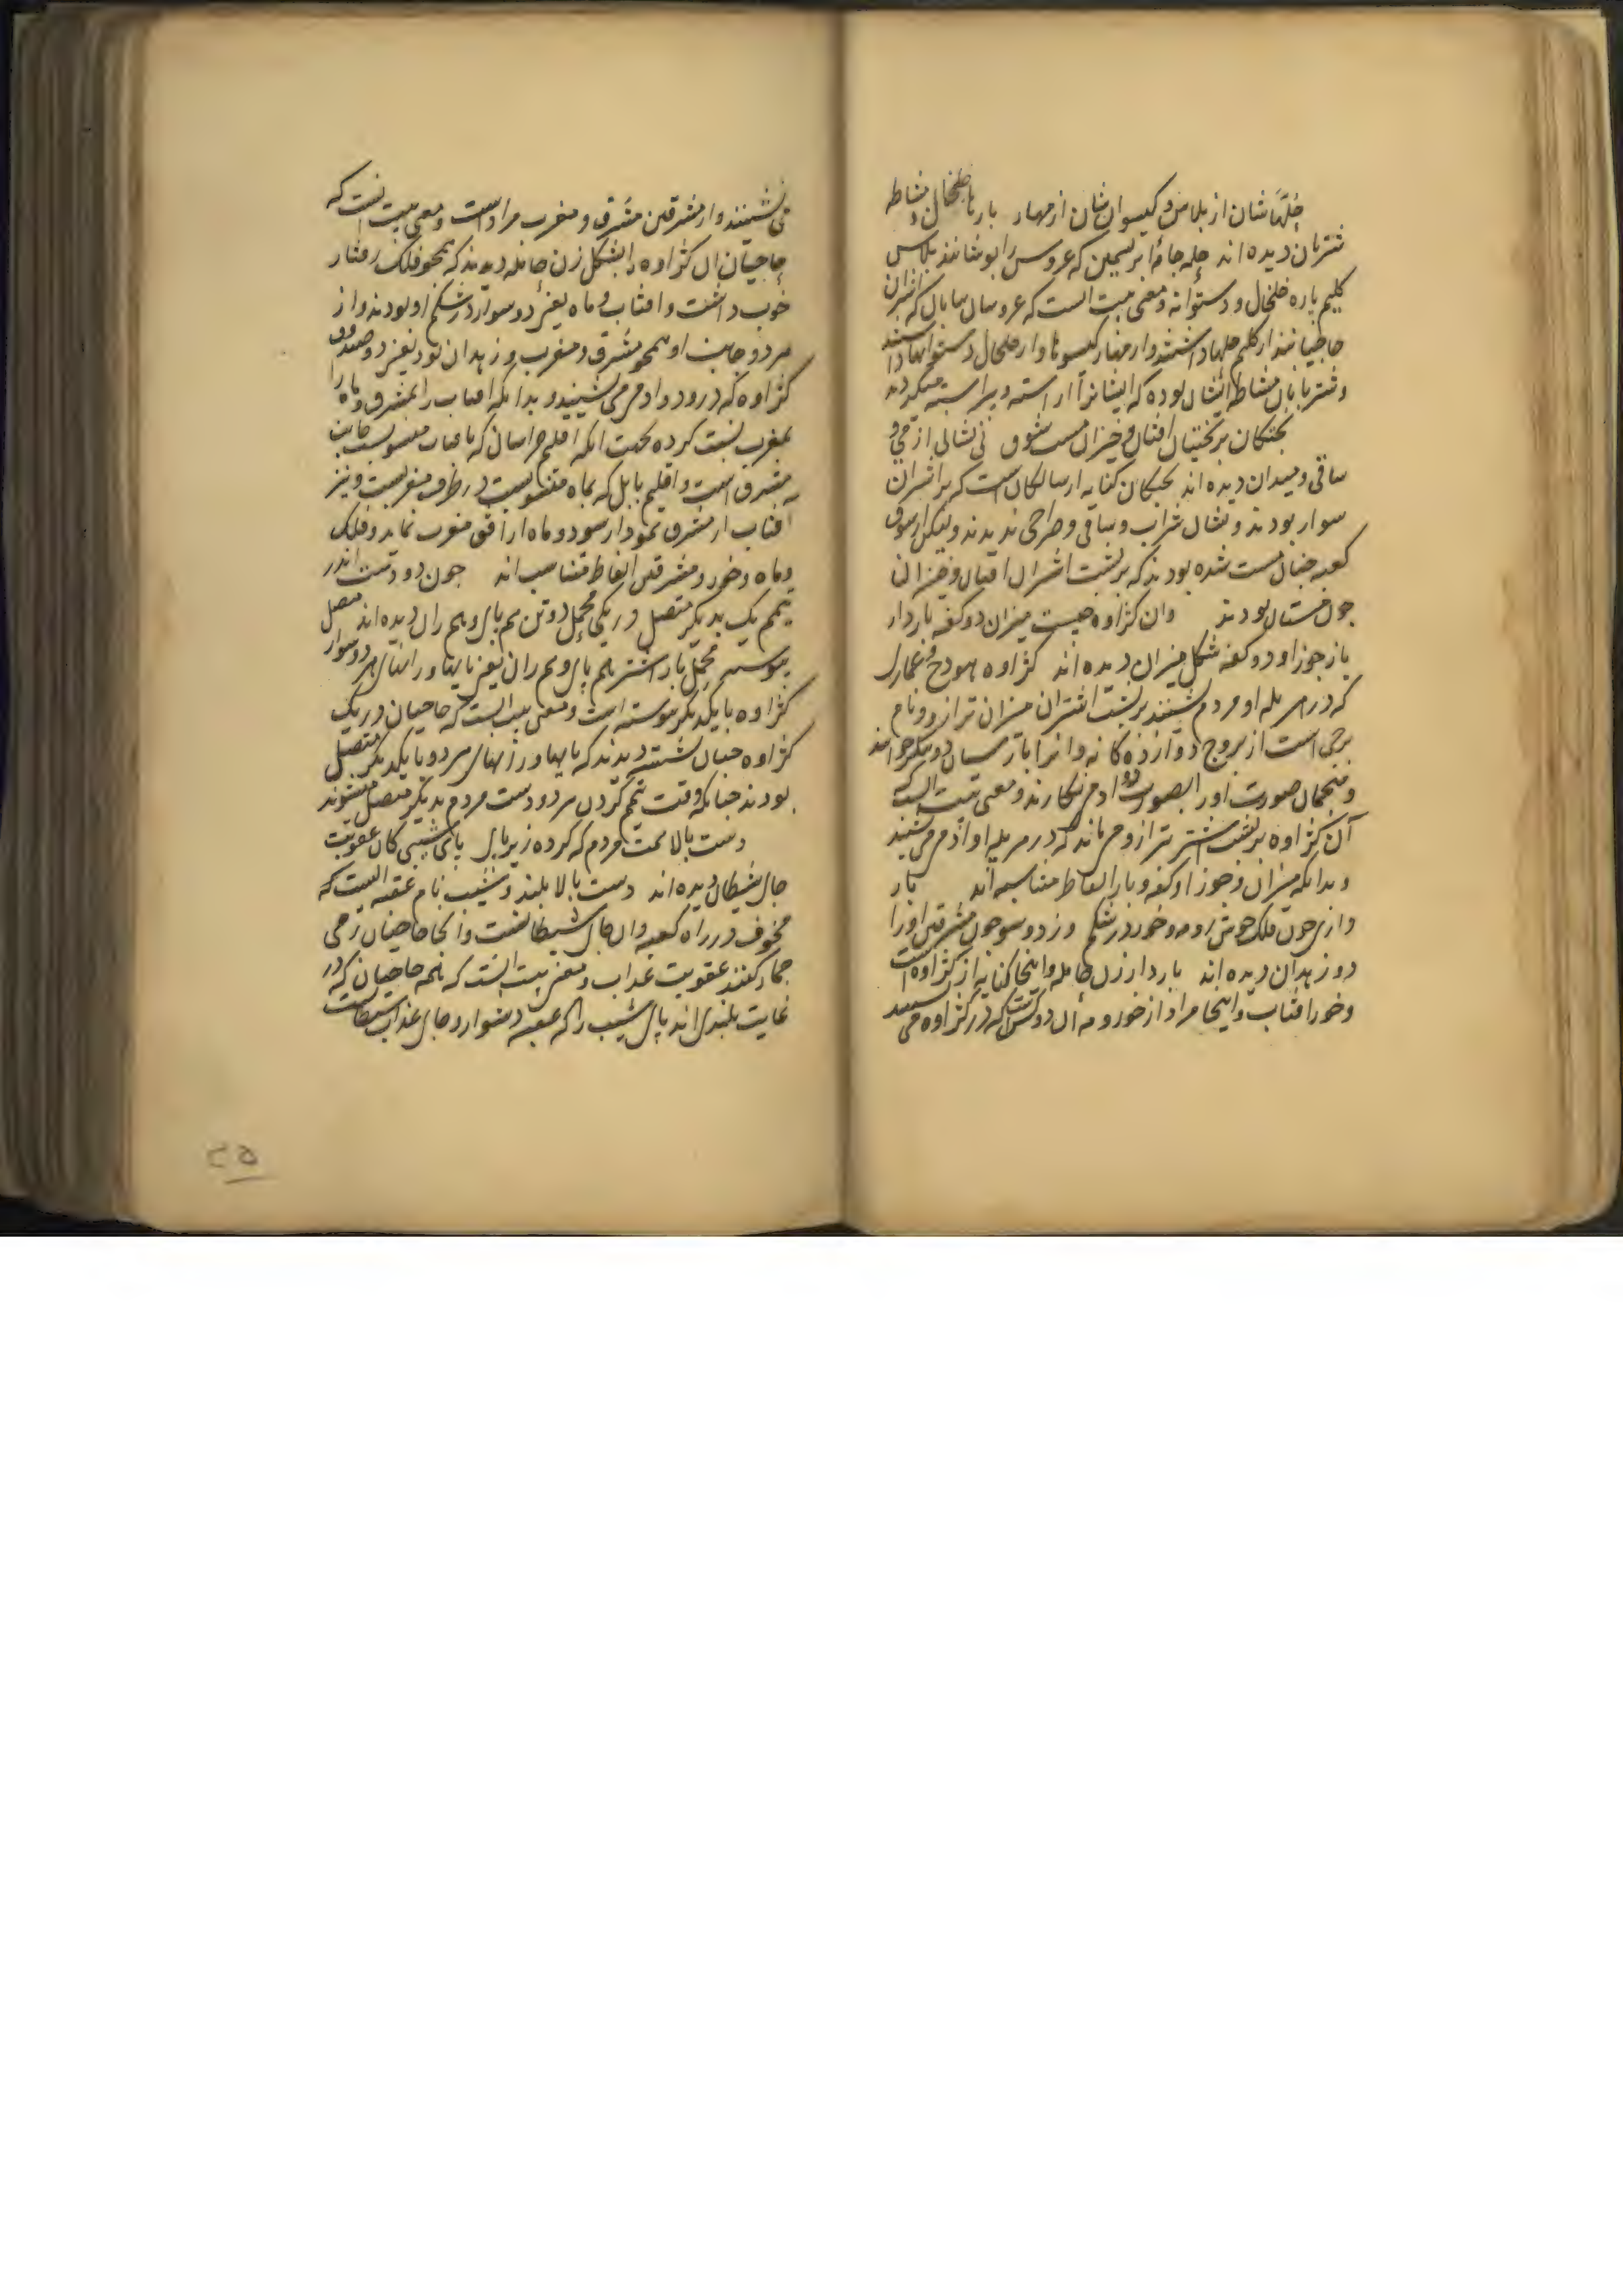 حلّهاشان از پلاس و گیسوان‌شان از مهار بارها خلخال و مشاطه
شتربان دیده اند حله جامهٔ ابریشمین که عروس را پوشانند پلاس
کلیم یاره خلخال و دستوانه و معنی بیت است که عروسان بیابان که شتران
حاجیانند از کلیم حلها داشتند و از مهار گیسوها و از خلخال دستوانها داشتند
و شتربانان مشاطه ایشان بوده که ایشانرا آراسته و پیراسته میکردند
بختیان افتان و خیزان مست شوق نی نشانی از می و
ساقی و میدان دیده اند کنایه از سالکان است که بر اشتران
سوار بودند و نشان شراب و ساقی و صراحی ندیدند ولیکن از شوق
کعبه چنان مست شده بودند که بر پشت اشتران افتان و خیزان
چون مستان بودند وان کژاوه چیست میزان دو کفه باردار
باز جوزا و دو کفه شکل میزان دیده اند کژاوه هودج و عماری
که در هر پله او مردم نشینند بر پشت اشتران میزان ترازو و نام
برجی است از بروج دوازده کانه و انرا پارسیان دو پیکر خوانند
و منجمان صورت او را بصورت دو ادمی نگارند و معنی بیت انست که
آن کژاوه بر پشت شتر ترازو می ماند که در هر پله او ادمی می نشیند
و بدانکه میزان و جوزا و کفه و بار الفاظ متناسبه اند بار
داری چون فلک خوش رو مه و خور در شکم وز دو سو چون مشرقین او را
دو زهدان دیده اند باردار زن حامله و اینجا کنایه از کژاوه است
و خور افتاب و اینجا مراد از خور و مه آن دو کس است که در کژاوه می نشینند
می نشینند و از مشرقین مشرق و مغرب مراد است و معنی بیت انست که
حاجیان ان کژاوه را بشکل زن حامله دیدند که همچو فلک رفتار
خوب داشت و افتاب و ماه یعنی دو سوار در شکم او بودند و از
هر دو جانب او همچو مشرق و مغرب دو زهدان بود یعنی دو صندوق
کژاوه که در و دو ادمی می نشینند و بدانکه افتاب را بمشرق و ماه را
بمغرب نسبت کرده بجهت انکه اقلیم خراسان که بافتاب منسوبست جانب
مشرق است و اقلیم بابل که بماه منسوبست در طرف مغربست و نیز
افتاب از مشرق نمودار شود و ماه از افق مغرب نماید و فلک
و ماه و خور و مشرقین الفاظ متناسب اند چون دو دست اندر
تیمم یک بدیکر متصل در یکی محمل دو تن هم پای و هم ران دیده اند متصل
پیوسته محمل بار اشتر هم پای و هم ران یعنی پایها و رانهای هر دو سوار
کژاوه با یکدیکر پیوسته است و معنی بیت انست که حاجیان در یک
کژاوه چنان نشسته دیدند که پایها و رانهای هر دو با یکدیکر متصل
بودند چنانکه وقت تیمم کردن هر دو دست مردم بدیکر متصل میشوند
دست بالا همت مردم که کرده زیر پای پای شیبی کان عقوبت
جای شیطان دیده اند دست بالا بلند و شیب نام عقبه ایست که
مخوف در راه کعبه وان جای شیطانست وانجا حاجیان رمی
جمار کنند عقوبت عذاب و معنی بیت انست که همه حاجیان که در
غایت بلندی اند پای شیب را که عقبه دشوار و جای عذاب شیطانست
۲۵